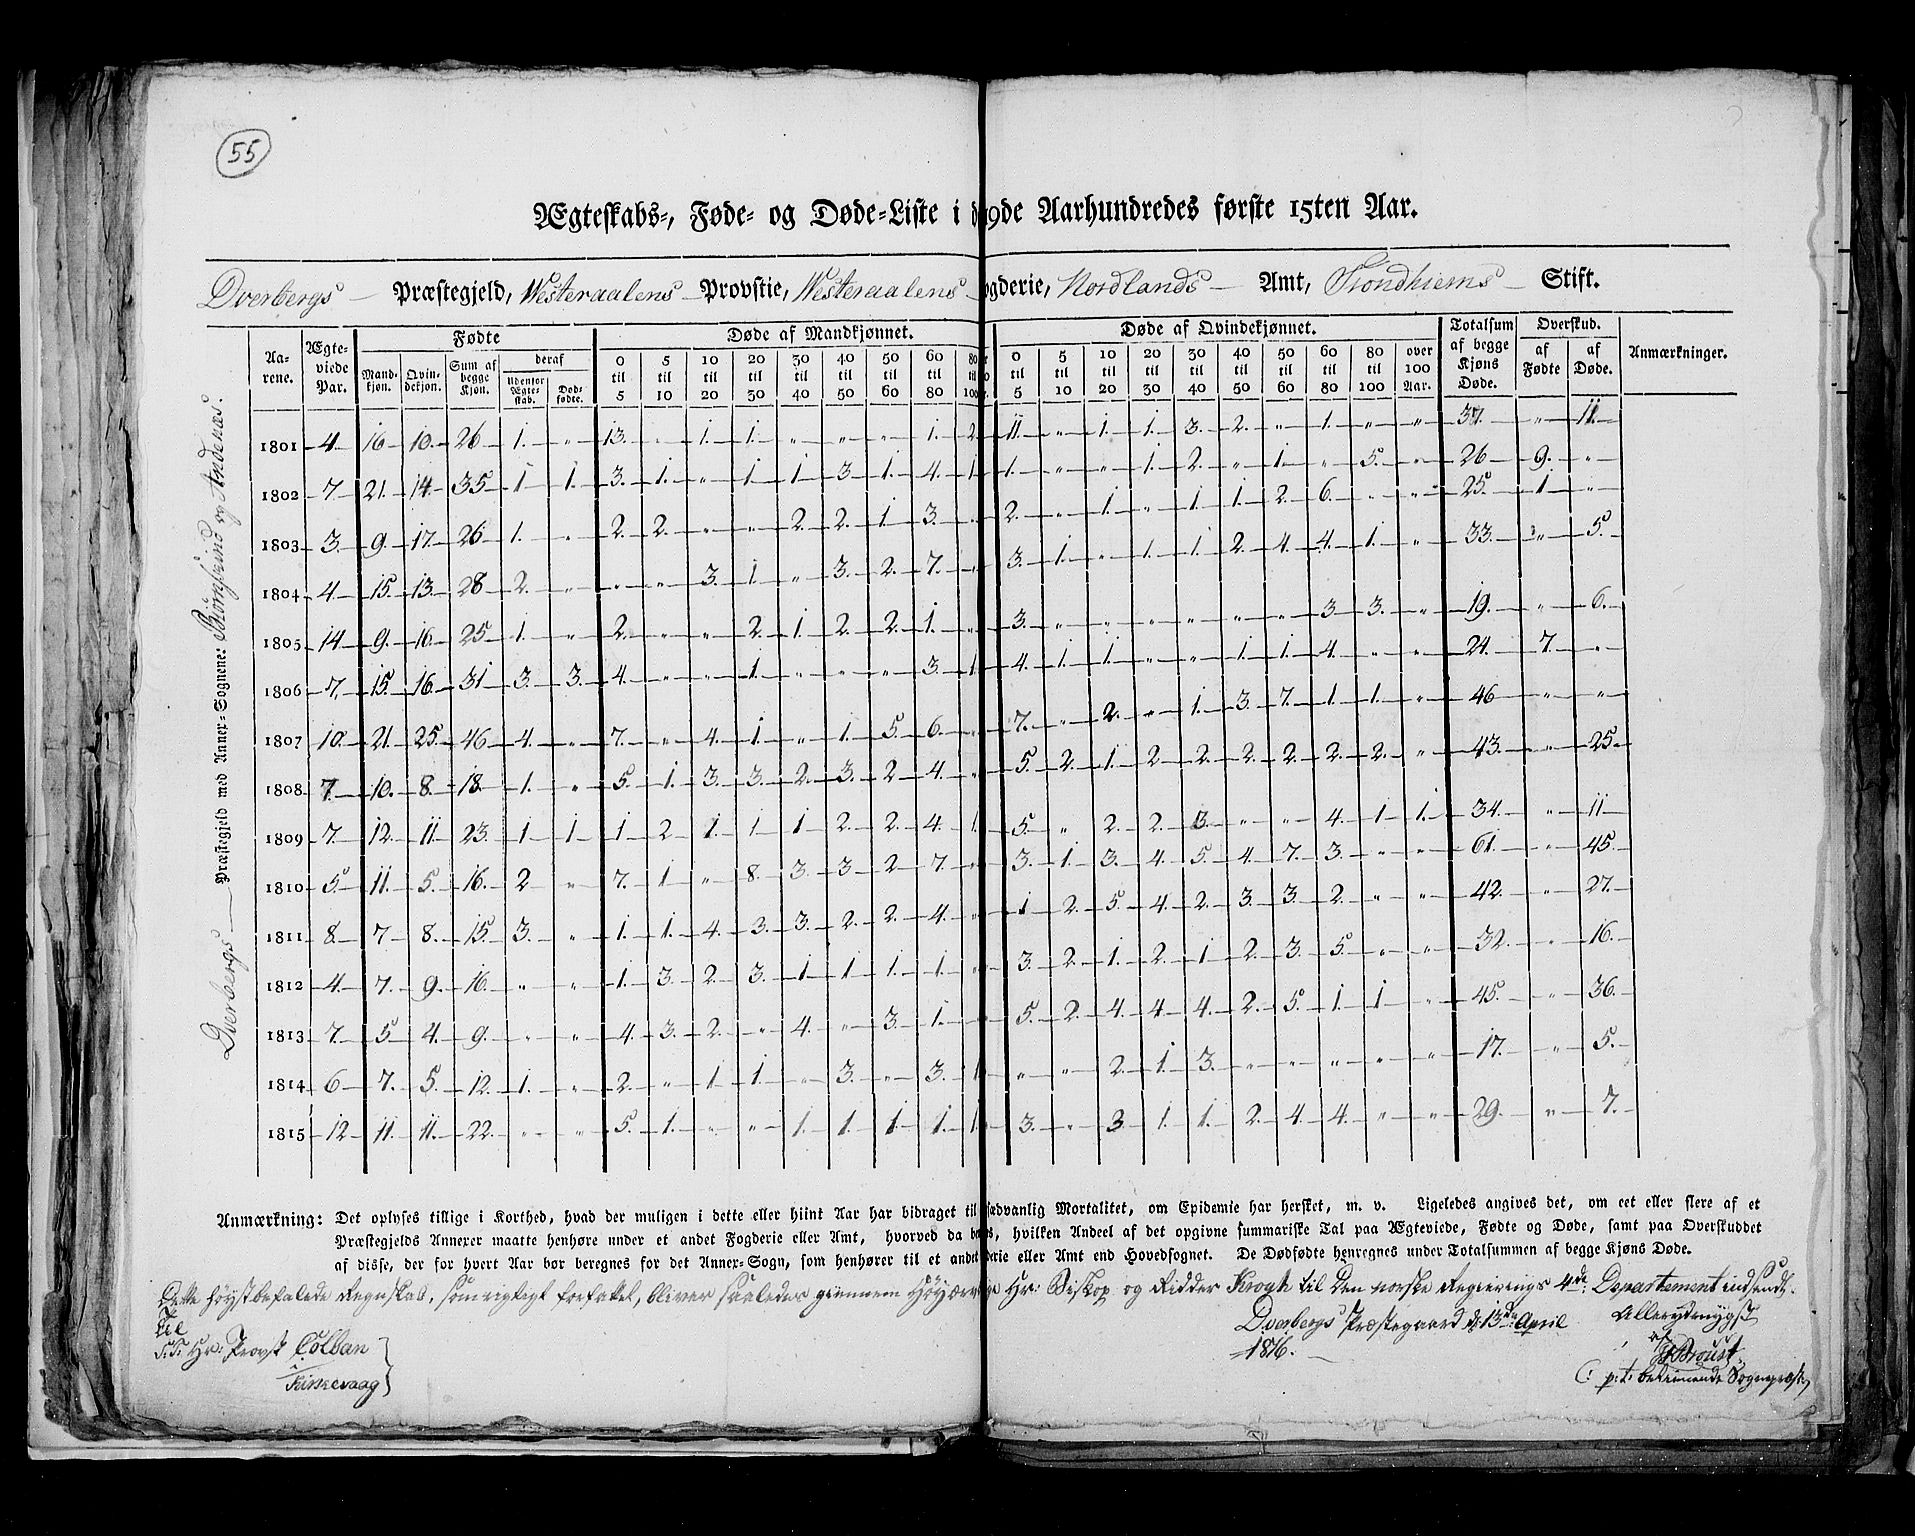 55
Ægteskabs-, Føde- og Døde-Liste i d 19de Aarhundredes første 15ten Aar.
Dverbergs Præstegjeld, Westeraalens Provstie, Westeraalens ogderie, Nordlands Amt, Trondhiems Stift.
Dverbergs Præstegjeld med Anner-Sognene: Biörnskind og Andenæs.
Aarene. Ægteviede Par. Fødte Døde af Mandkjønnet. Døde af Qvindekjønnet. Totalsum af begge Kjøns Døde. Overskud. Anmærkninger.
Mandkjøn. Qvindekjøn. Sum af begge Kjøn. deraf Udenfor Ægteskab. Dødfødte. 0 til 5 5 til 10 10 til 20 20 til 30 30 til 40 40 til 50 50 til 60 60 til 80 80 til 100 0 til 5 5 til 10 10 til 20 20 til 30 30 til 40 40 til 50 50 til 60 60 til 80 80 til 100 over 100 Aar. af Fødte af Døde.
1801 4. 16 10. 26 1. " 13. " 1. 1. " " " 1. 2 11. " 1. 1. 3. 2. " 1. " " 37. " 11.
1802 7 21. 14. 35 1 1. 3. 1. " 1 1 3 1. 4. 1 1. " " 1. 2. " 1. " 5. " 26 9. "
1803 3. 9. 17. 26 1. " 2. 2. " " 2. 2. 1 3. " 2. " 1. " 1 1. 2. 6. " " 25. 1 "
1804 4. 15. 13. 28 2. " " " 3. 1 " 3. 2. 7. " 3. 1. " 1. 1. 2. 4. 4. 1. " 33. " 5.
1805 14 9. 16. 25 1. " 2. " " 2. 1 2. 2. 1. " 3. " " " " " " 3 3. " 19. " 6.
1806 7. 15. 16. 31 3. 3. 4. " " 1. " " " 3. 1 4. 1 1. " " 1. 1. 4. " " 24. 7. "
1807 10. 21. 25. 46 4. " 7. " 4. 1 " 1. 5. 6. " 7. " 2. " 1. 3. 7. 1. 1. " 46 " "
1808 7. 10. 8. 18. 1. " 5. 1. 3. 3. 2. 3. 2 4. " 5. 2. 1. 2 2. 2. 2. 2. 2. " 43. " 25.
1809 7. 12. 11. 23. 1 1 1 2 1. 1 1 2. 2. 4. 1. 5. " 2. 2. 3. " " 4. 1 1. 34. " 11
1810 5. 11. 5. 16. 2 " 7. 1 " 8. 3. 3 2 7. " 3. 1. 3. 4. 5. 4. 7. 3. " " 61. " 45.
1811 8. 7 8. 15. 3. " 1. 1. 4. 3. 3. 2. 2. 4. " 1 2. 5. 4. 2. 3. 3. 2. " " 42. " 27.
1812 4. 7. 9. 16. " " 1. 3. 2. 3. 1 1 1. 1. " 3. 2. 1. 2. 1 2. 3. 5. " " 32. " 16.
1813 7. 5 4. 9. " " 4. 3. 2. " 4. " 3. 1. " 5. 2. 4. 4. 4. 2. 5. 1 1 " 45. " 36.
1814 6 7. 5. 12. 1. " 2. " 1 1. " 3. " 3. 1 " " 2. 1 3. " " " " " 17. " 5.
1815 12 11. 11. 22. " " 5. 1. " " 1. 1. 1 1. 1. 3. " 3. 1. 1. 2. 4. 4. " " 29. " 7.
Anmærkning: Det oplyses tillige i Korthed, hvad der muligen i dette eller hiint Aar har bidraget til sædvanlig Mortalitet, om Epidemie har hersket, m. v. Ligeledes angives det, om eet eller flere af et
Præstegjelds Annerer maatte henhøre under et andet Fogderie eller Amt, hvorved da be s, hvilken Andeel af det opgivne summariske Tal paa Ægteviede, Fødte og Døde, samt paa Overskuddet
af disse, der for hvert Aar bør beregnes for det Anner-Sogn, som henhører til et andet derie eller Amt end Hovedsognet. De Dødfødte henregnes under Totalsummen af begge Kjøns Døde.
Dette höystbefalede Regnskab, som rigtigt forfattet, bliver saaledes giennem Höyær Hr: Biskop og Ridder Krogh til den norske Regierings 4de: Departement indsendt.
Dverbergs Præstegaard d: 13de April Allerydmygst
1816.
Til
S.T. Hr: Provst Colban
af
p: t: betienende Sognepræst